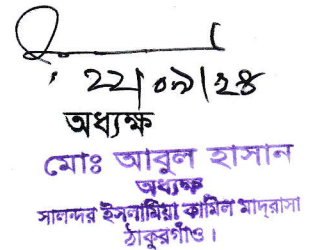 ২২|০৯|২৪
অধ্যক্ষ
মোঃ আবুল হাসান
অধ্যক্ষ
সালন্দর ইসলামিয়া কামিল মাদ্রাসা
ঠাকুরগাঁও।